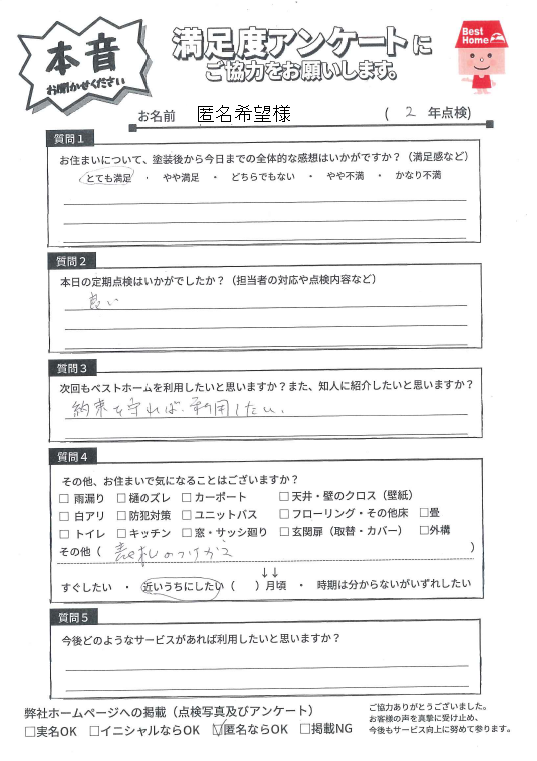 本音
お聞かせください
満足度アンケートに
ご協力をお願いします。
Best Home
お名前 匿名希望様 ( 2 年点検)
質問1
お住まいについて、塗装後から今日までの全体的な感想はいかがですか?(満足感など)
とても満足 ・ やや満足 ・ どちらでもない ・ やや不満 ・ かなり不満
質問2
本日の定期点検はいかがでしたか?(担当者の対応や点検内容など)
良い
質問3
次回もベストホームを利用したいと思いますか?また、知人に紹介したいと思いますか?
約束を守れば、利用したい。
質問4
その他、お住まいで気になることはございますか?
□ 雨漏り □ 樋のズレ □ カーポート □ 天井・壁のクロス(壁紙)
□ 白アリ □ 防犯対策 □ ユニットバス □ フローリング・その他床 □畳
□ トイレ □ キッチン □ 窓・サッシ廻り □ 玄関扉(取替・カバー) □外構
その他( 表札のつけかえ )
↓↓
すぐしたい ・ 近いうちにしたい( )月頃 ・ 時期は分からないがいずれしたい
質問5
今後どのようなサービスがあれば利用したいと思いますか?
弊社ホームページへの掲載(点検写真及びアンケート)
□実名OK □イニシャルならOK ☑匿名ならOK □掲載NG
ご協力ありがとうございました。
お客様の声を真摯に受け止め、
今後もサービス向上に努めて参ります。